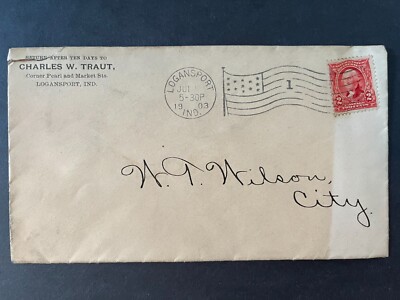 RETURN AFTER TEN DAYS TO
CHARLES W. TRAUT,
Corner Pearl and Market Sts.
LOGANSPORT, IND.
LOGANSPORT
JUL
5-30P
1903
IND.
1
2 2
W. T. Wilson,
City.